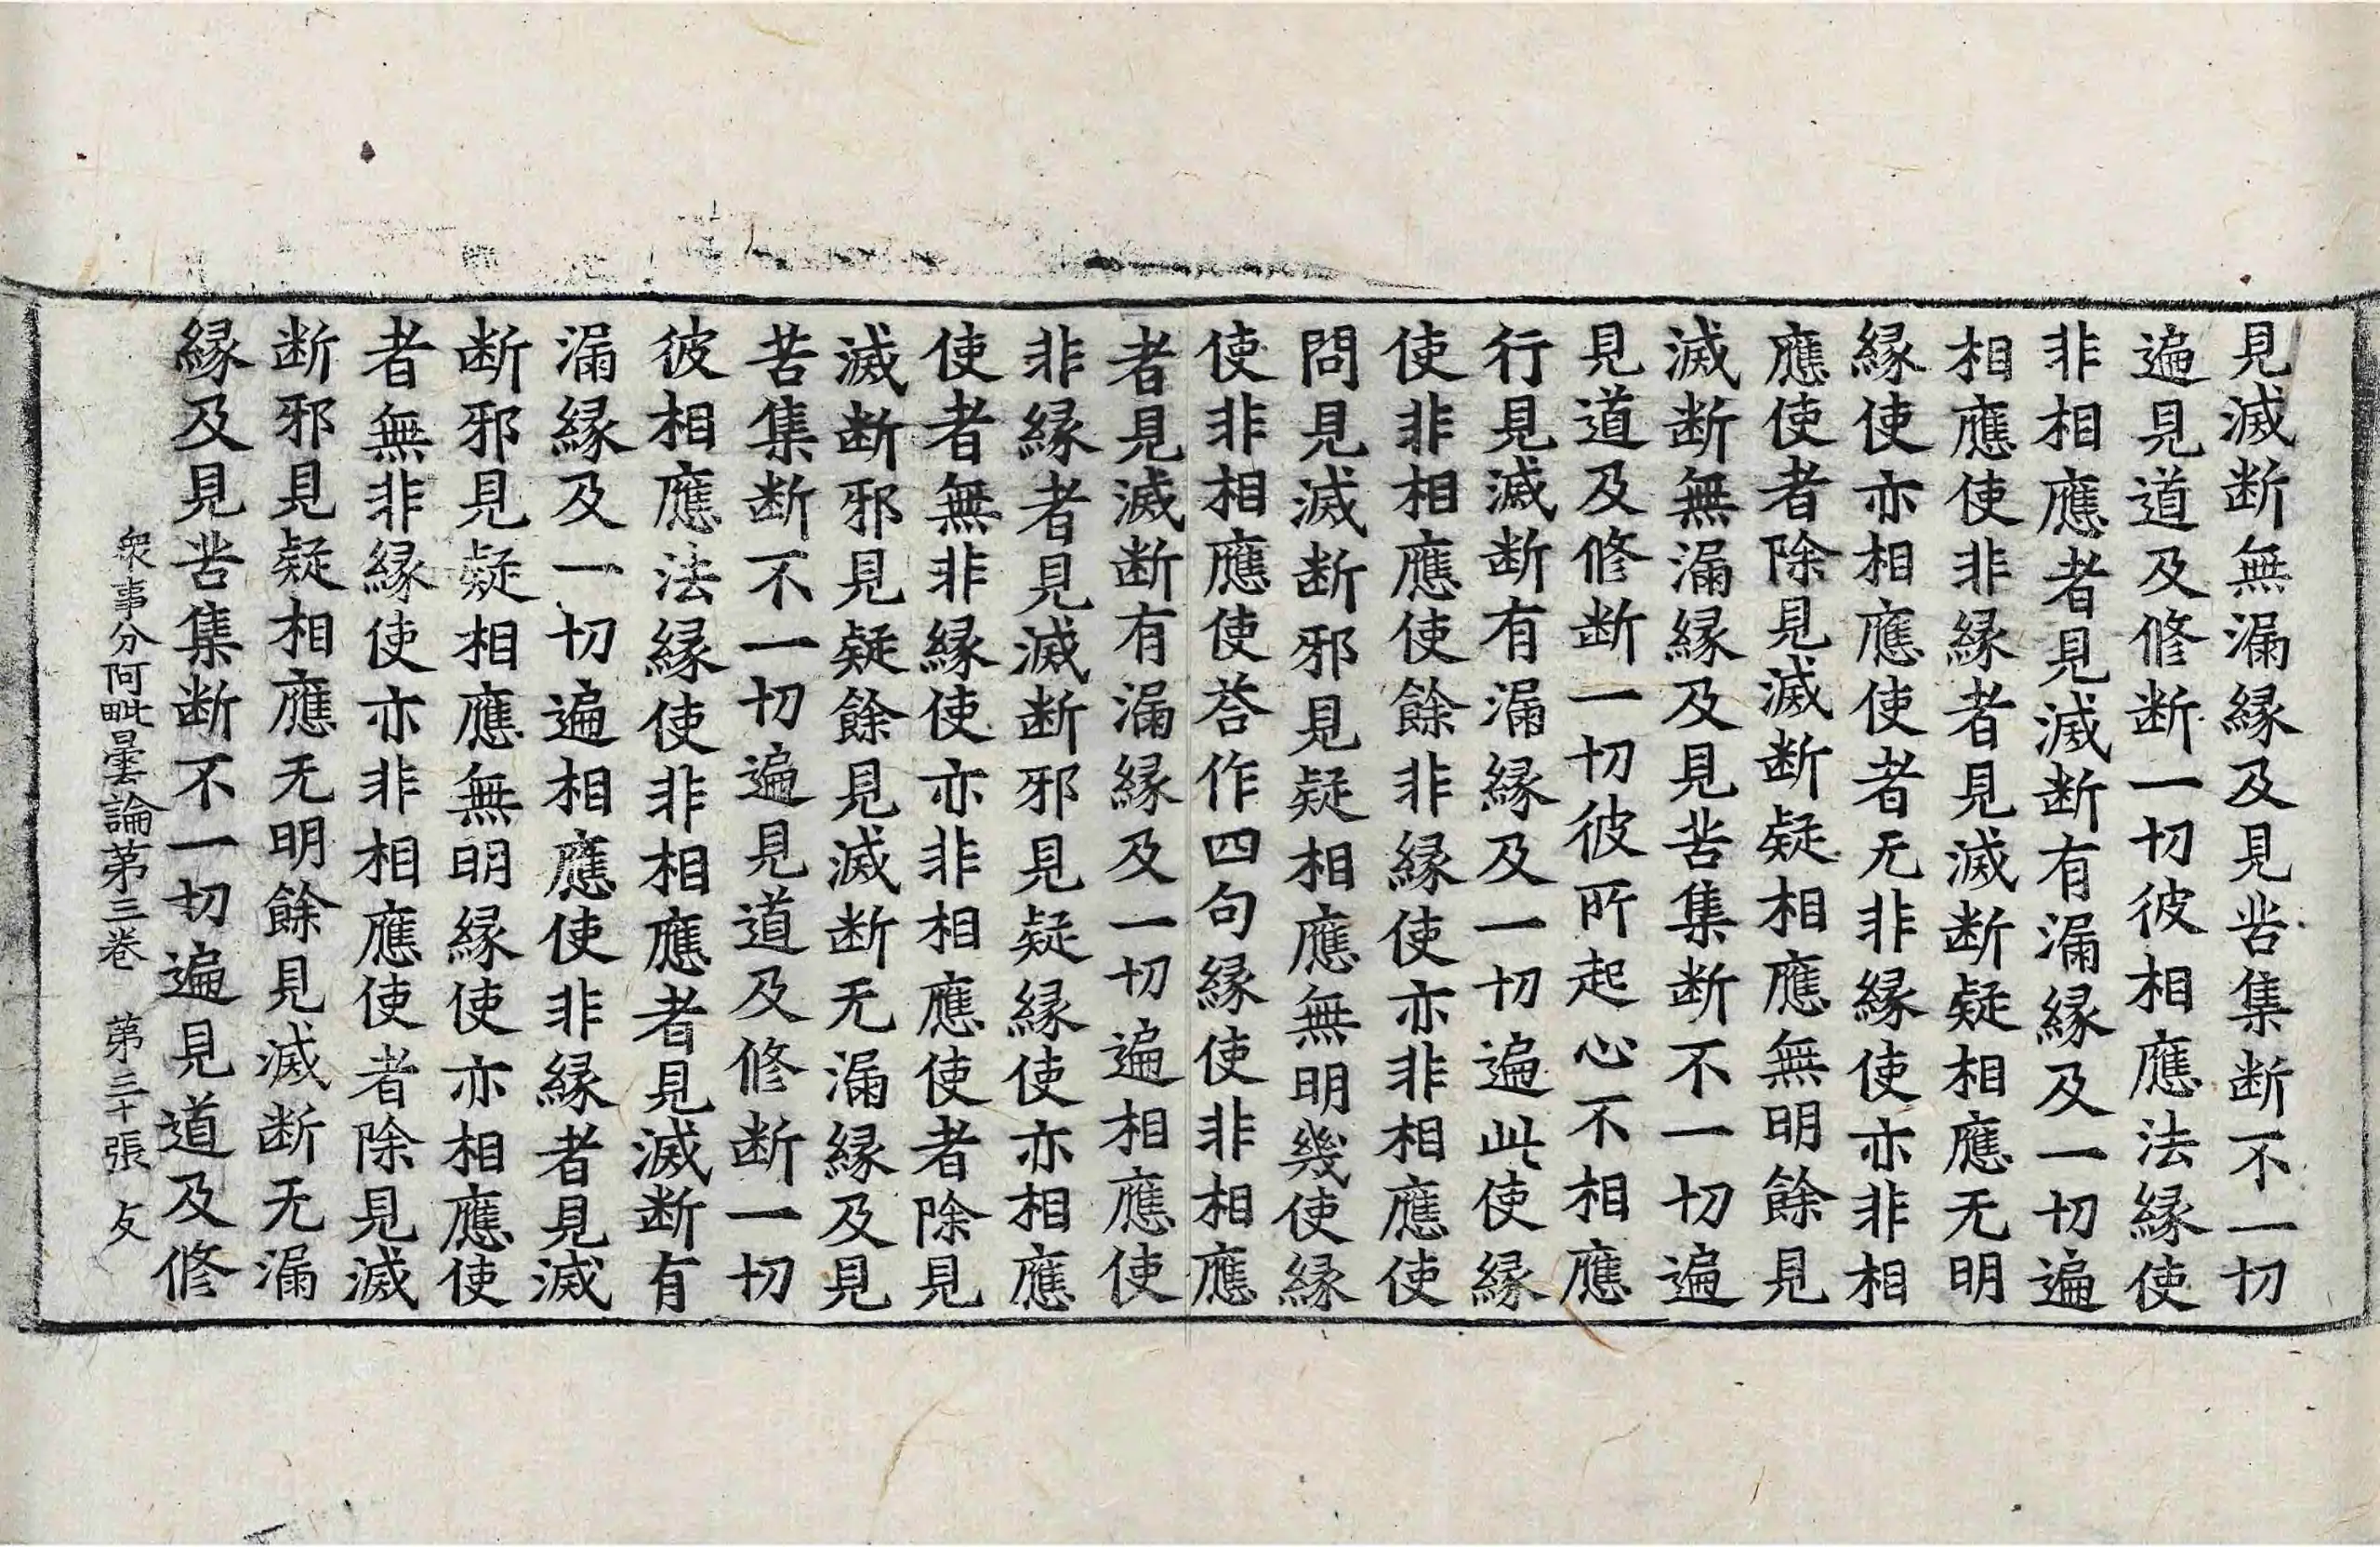 見滅断無漏縁及見苦集断不一切
遍見道及修断一切彼相應法縁使
非相應者見滅断有漏縁及一切遍
相應使非縁者見滅断疑相應无明
縁使亦相應使者无非縁使亦非相
應使者除見滅断疑相應無明餘見
滅断無漏縁及見苦集断不一切遍
見道及修断一切彼所起心不相應
行見滅断有漏縁及一切遍此使縁
使非相應使餘非縁使亦非相應使
問見滅断邪見疑相應無明幾使縁
使非相應使荅作四句縁使非相應
者見滅断有漏縁及一切遍相應使
非縁者見滅断邪見疑縁使亦相應
使者無非縁使亦非相應使者除見
滅断邪見疑餘見滅断无漏縁及見
苦集断不一切遍見道及修断一切
彼相應法縁使非相應者見滅断有
漏縁及一切遍相應使非縁者見滅
断邪見疑相應無明縁使亦相應使
者無非縁使亦非相應使者除見滅
断邪見疑相應无明餘見滅断无漏
縁及見苦集断不一切遍見道及修
衆事分阿毗曇論苐三卷 苐三十張 攴